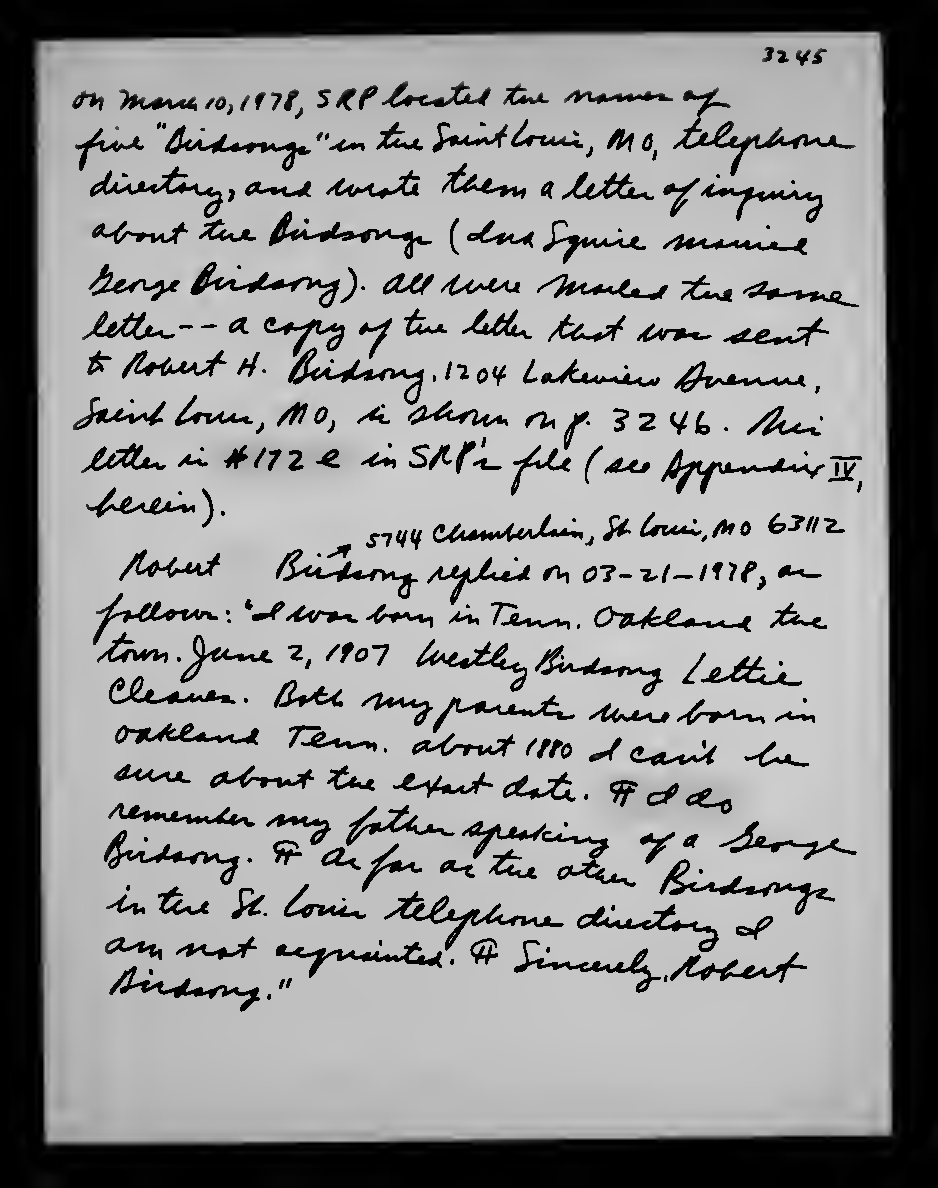 3245
On March 10, 1978, SRP located the names of
five "Birdsongs" in the Saint Louis, MO, telephone
directory, and wrote them a letter of inquiry
about the Birdsongs (Ina Squire married
George Birdsong). All were mailed the same
letter -- a copy of the letter that was sent
to Robert H. Birdsong, 1204 Lakeview Avenue,
Saint Louis, MO, is shown on p. 3246. This
letter is #172 e in SRP's file (see Appendix IV,
herein).
5744 Chamberlain, St. Louis, MO 63112
Robert Birdsong replied on 03-21-1978, as
follows: "I was born in Tenn. Oakland the
town. June 2, 1907 Westley Birdsong Lettie
Cleaves. Both my parents were born in
Oakland Tenn. about 1880 I can't be
sure about the exact date. ¶ I do
remember my father speaking of a George
Birdsong. ¶ As far as the other Birdsongs
in the St. Louis telephone directory I
am not acquainted. ¶ Sincerely, Robert
Birdsong."